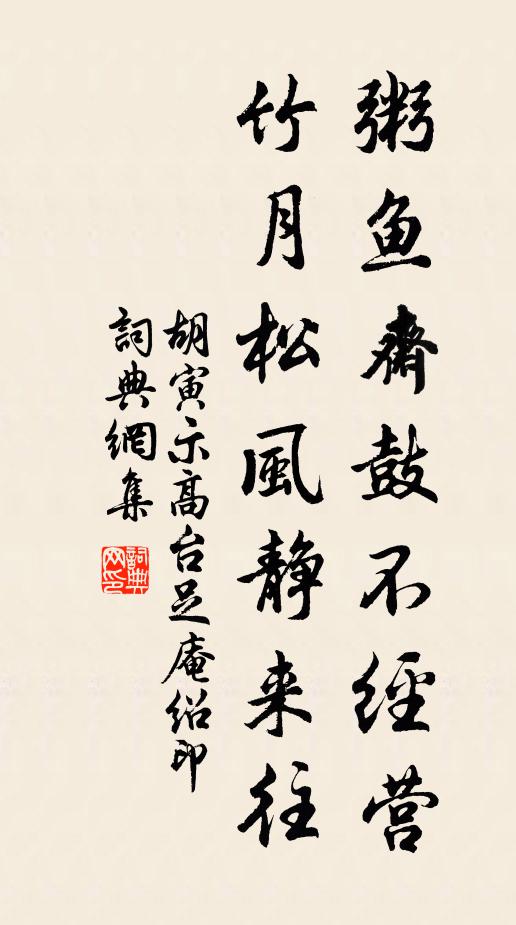 粥鱼齋鼓不經营
竹月松風静来往
胡寅示高台足庵绍印
詞典網集
詞典网印